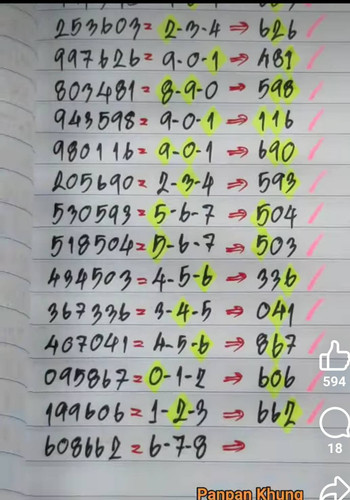 253603 = 2-3-4 ⇒ 626
997626 = 9-0-1 ⇒ 481
803481 = 8-9-0 ⇒ 598
943598 = 9-0-1 ⇒ 116
980116 = 9-0-1 ⇒ 690
205690 = 2-3-4 ⇒ 593
530593 = 5-6-7 ⇒ 504
518504 = 5-6-7 ⇒ 503
434503 = 4-5-6 ⇒ 336
367336 = 3-4-5 ⇒ 041
407041 = 4-5-6 ⇒ 867
095867 = 0-1-2 ⇒ 606
199606 = 1-2-3 ⇒ 662
608662 = 6-7-8 ⇒
594
18
Panpan Khung